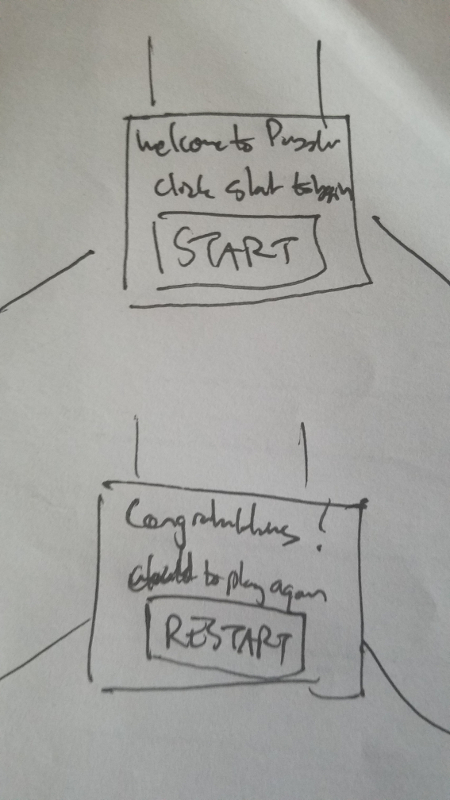 Welcome to Puzzler
click start to begin
START
Congratulations!
to play again
RESTART